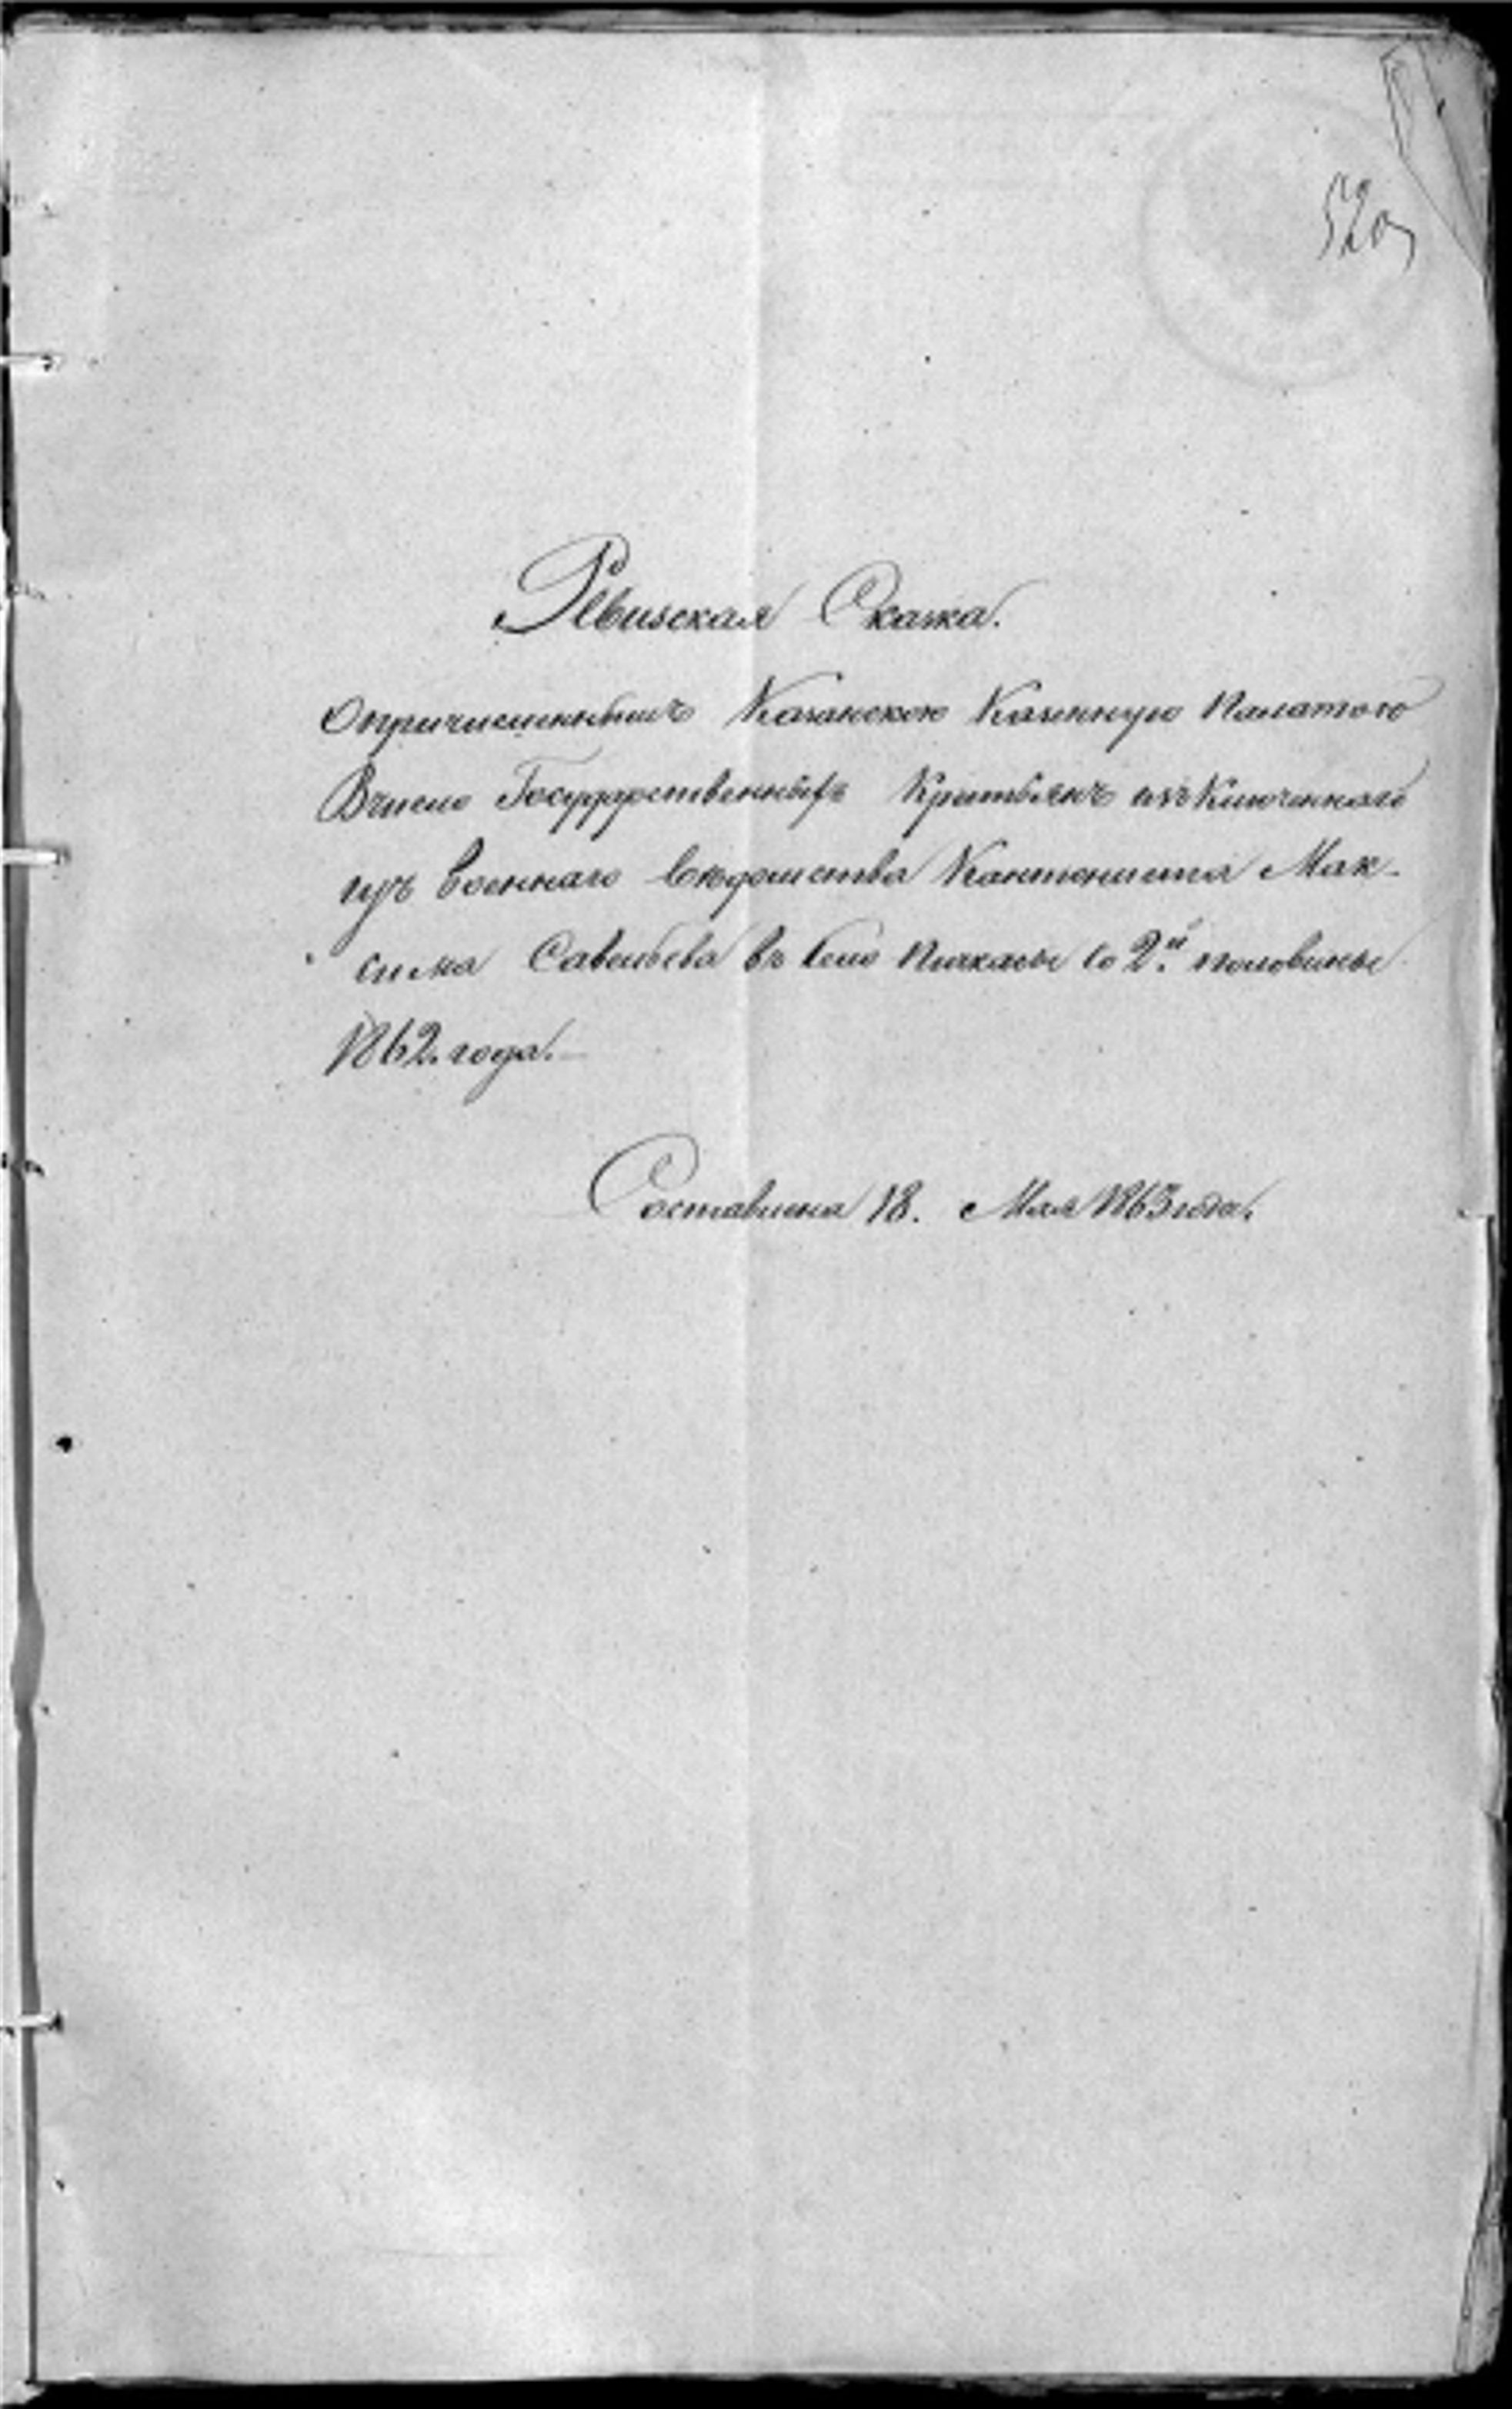 520
Ревизская Сказка.
Опричисленномъ Казанскою Казенную Палатою
Вчисло Государственныхъ Крестьянъ изъКлюченнаго
изъ военнаго ведомства Кантониста Мак-
сима Савельева въ село со 2й половины
1862. года.
Составлена 18. Мая 1863 года.